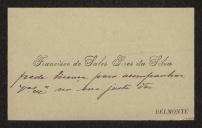 Francisco de Sales Pres da Silva
pede licença para acompanhar
V. Ex.ª na sua justa dor
BELMONTE